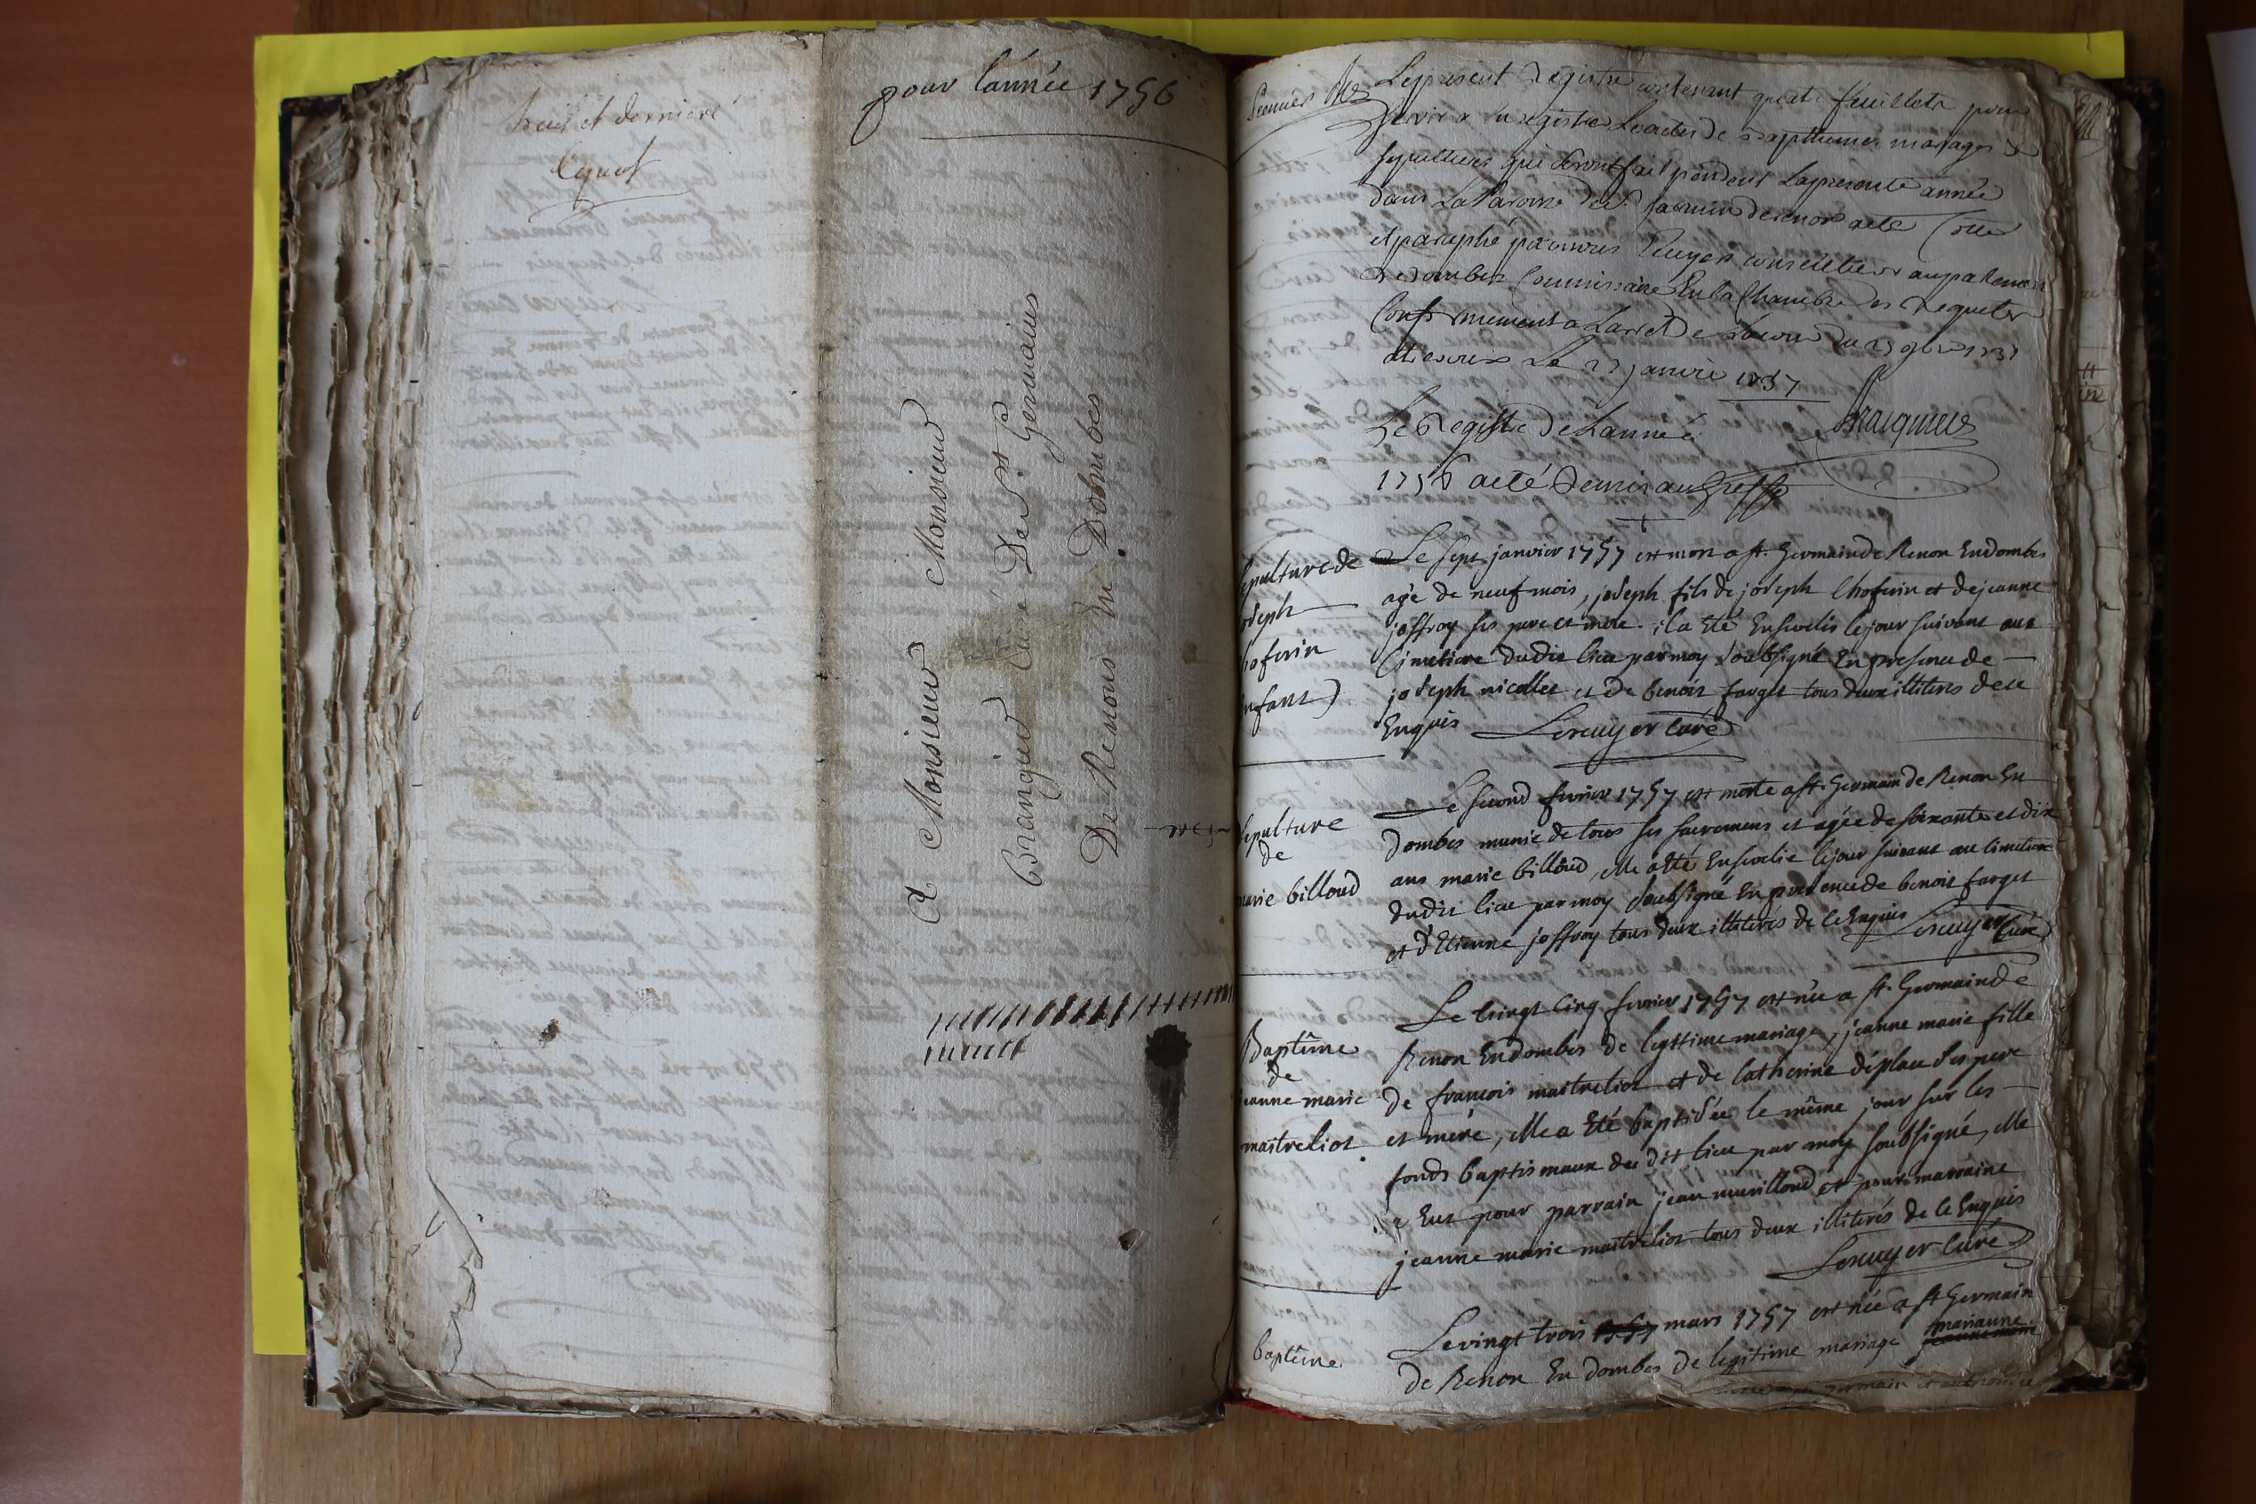 huit et dernier
pour lannée 1756
A Monsieur Monsieur
Branguier Curé De St Germains
De Renons En Dobmbes
Premier
Le present Registre contenant quatre feuillets pour
servir a Enregistrer Les actes de Bapthemes mariages &
sepultures qui seront fait pendent La presente année
dans La Paroisse de St Germain de renon a eté Cotté
et paraphé par nous Ecuyer conseiller au parlement
de dombes Commissaire En La Chambre des Requetes
Conformement a Larret de La cour du
a trevoux Le 23 janvier 1757
Le Registre De Lannee
1756 a eté Remis au Greffe
sepulture de
joseph
enfant)
Le sept janvier 1757 est mort a st. Germain de Renon En dombes
agé de neuf mois, joseph fils de joseph Choferin et de jeanne
joffroy ses pere et mere. il a eté Ensevelis le jour suivant au
Cimetiere dudit lieu par moy soubsigné En presence de
joseph nicollet et de benoit farget tous deux illiterés de ce
Enquis Lescuyer Curé
Sepulture
de
marie billoud
Le second fevrier 1757 est morte a st. Germain de Renon En
dombes munie de tous ses sacremens et agée de soixante et dix
ans marie billoud, elle a eté Ensevelie le jour suivant au cimetiere
dudit lieu par moy soubsigné En presence de benoit farget
et d'Etienne joffroy tous deux illiterés de ce Enquis Lescuyer Curé
Baptême
de
jeanne marie
maitreliot
Le vingt cinq fevrier 1757 est née a st. Germain de
Renon En dombes de legttime mariage, jeanne marie fille
de françois maitreliot et de Catherine déplace ses pere
et mere, elle a eté baptisée le même jour sur les
fonds baptismaux du dit lieu par moy soubsigné, elle
a Eut pour parrain jean murilloud et pour marraine
jeanne marie maitreliot tous deux illiterés de ce Enquis
Lescuyer Curé
baptême
Le vingt trois mars 1757 est née a st Germain
de Renon En dombes de legitime mariage marianne